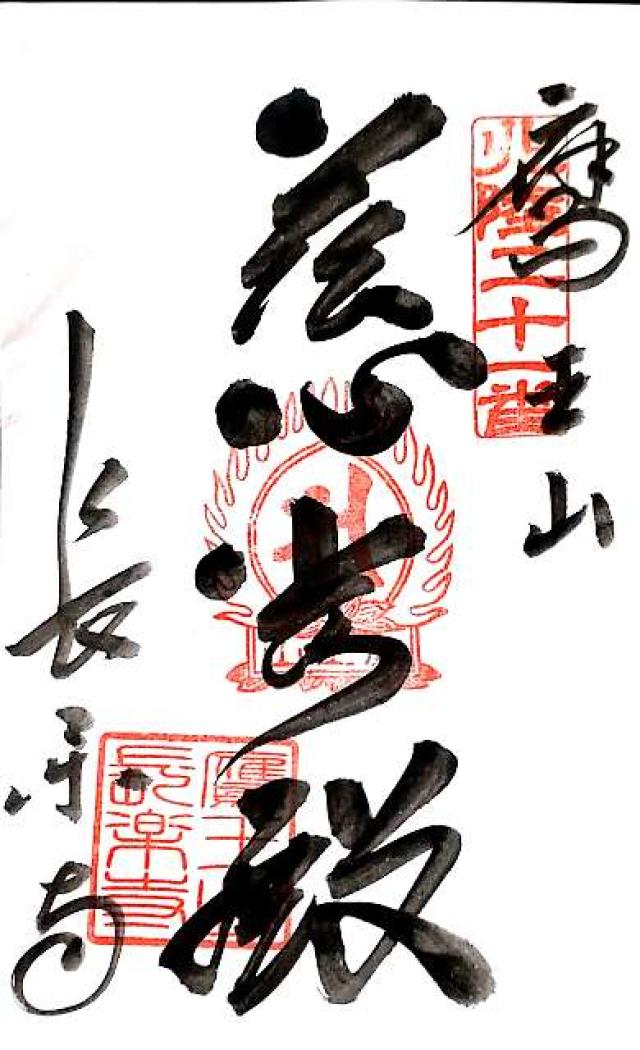 鷹王山
北陸二十一番
慈
殿
長楽寺
鷹王山
長楽寺